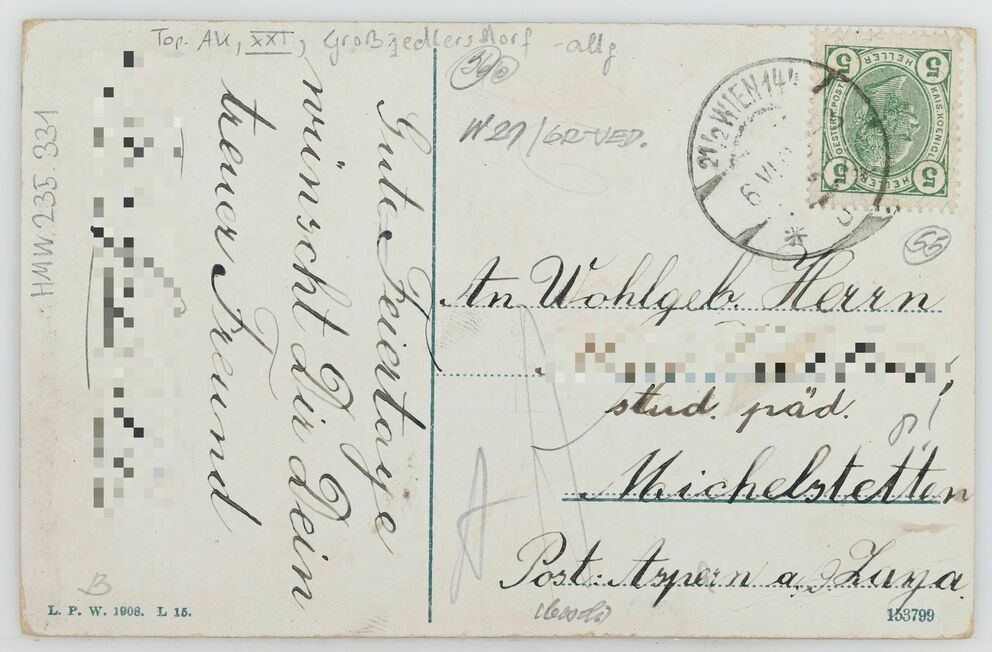 Top. AK, XXI, Großjedlersdorf - allg
HMW 235.331
Gute Feiertage
wünscht Dir Dein
treuer Freund
W 21/GR-VED.
21/2 WIEN 144
6 VI
5 HELLER 5
KAIS. KOENIGL.
OESTERR. POST
5 HELLER 5
55
An Wohlgeb. Herrn
stud. päd.
Michelstetten
Post: Aspern a. Zaya
B
L. P. W. 1908. L 15.
153799